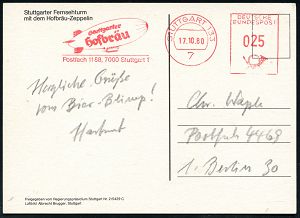 Stuttgarter Fernsehturm
mit dem Hofbräu-Zeppelin
Stuttgarter
Hofbräu
Postfach 1188, 7000 Stuttgart 1
STUTTGART 133
17.10.80
7
DEUTSCHE
BUNDESPOST
025
Herzliche Grüße
vom Bier-Blimp!
Hartmut
Chr. Waple
Postfach 4469
1 Berlin 30
Freigegeben vom Regierungspräsidium Stuttgart Nr.
Luftbild Albrecht Brugger, Stuttgart